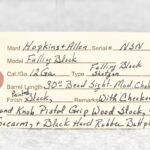 Manf Hopkins + Allen, Serial # NSN
Model Falling Block
Cal./Ga. 12 Ga Type Falling Block Shotgun
Barrel Length 30" Bead Sight - Mod. Choke
Finish Black, Remarks With Checkered
and Knob Pistol Grip Wood Stock,
Forearm, + Black Hard Rubber Buttplate